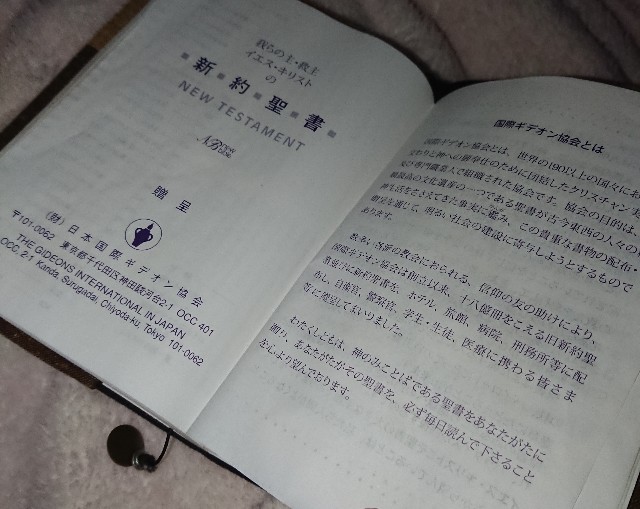 我らの主・救主
イエス・キリスト
の
新約聖書
NEW TESTAMENT
贈呈
(財)日本国際ギデオン協会
〒101-0062 東京都千代田区神田駿河台2.1 OCC 401
THE GIDEONS INTERNATIONAL IN JAPAN
OCC, 2-1 Kanda, Surugadai, Chiyoda-ku, Tokyo 101-0062
国際ギデオン協会とは
国際ギデオン協会とは、世界の190以上の国々にお
交わりと神への御奉仕のために団結したクリスチャン
及び専門職業人で組織された協会です。協会の目的は、
最高の文化遺産の一つである聖書が古今東西の人々の
神生活をささえてきた事実に鑑み、この貴重な書物の配布・
贈呈を通して、明るい社会の建設に寄与しようとするもので
あります。
数多い各派の教会におられる、信仰の友の助けにより、
国際ギデオン協会は創立以来、十八億冊をこえる旧新約聖
書並びに新約聖書を、ホテル、旅館、病院、刑務所等に配
布し、自衛官、警察官、学生・生徒、医療に携わる皆さま
等に贈呈してまいりました。
わたくしどもは、神のみことばである聖書をあなたがたに
贈り、あなたがたがその聖書を、必ず毎日読んで下さること
を心より望んでおります。